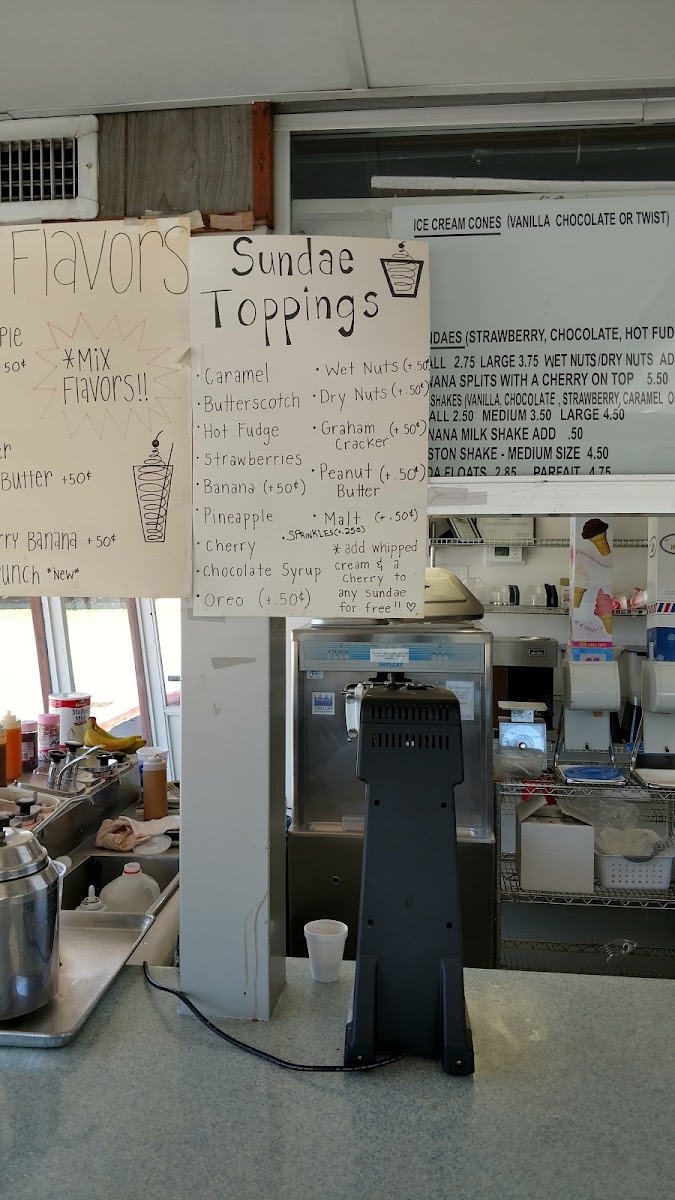 Flavors
50¢
*Mix
Flavors!!
Butter +50¢
Banana +50¢
*New*
Sundae
Toppings
• Caramel
• Butterscotch
• Hot Fudge
• Strawberries
• Banana (+50¢)
• Pineapple
• Cherry
• Chocolate Syrup
• Oreo (+.50¢)
• Wet Nuts (+.50¢
• Dry Nuts (+.50¢)
• Graham (+.50¢)
Cracker
• Peanut (+.50¢)
Butter
• Malt (+.50¢)
• SPRINKLES (+.25¢)
*add whipped
cream & a
cherry to
any sundae
for free!! ♡
ICE CREAM CONES (VANILLA CHOCOLATE OR TWIST)
(STRAWBERRY, CHOCOLATE, HOT
2.75 LARGE 3.75 WET NUTS/DRY NUTS
SPLITS WITH A CHERRY ON TOP 5.50
SHAKES (VANILLA, CHOCOLATE, STRAWBERRY, CARAMEL
2.50 MEDIUM 3.50 LARGE 4.50
MILK SHAKE ADD .50
SHAKE - MEDIUM SIZE 4.50
FLOATS 2.85 PARFAIT 4.75
TAYLOR